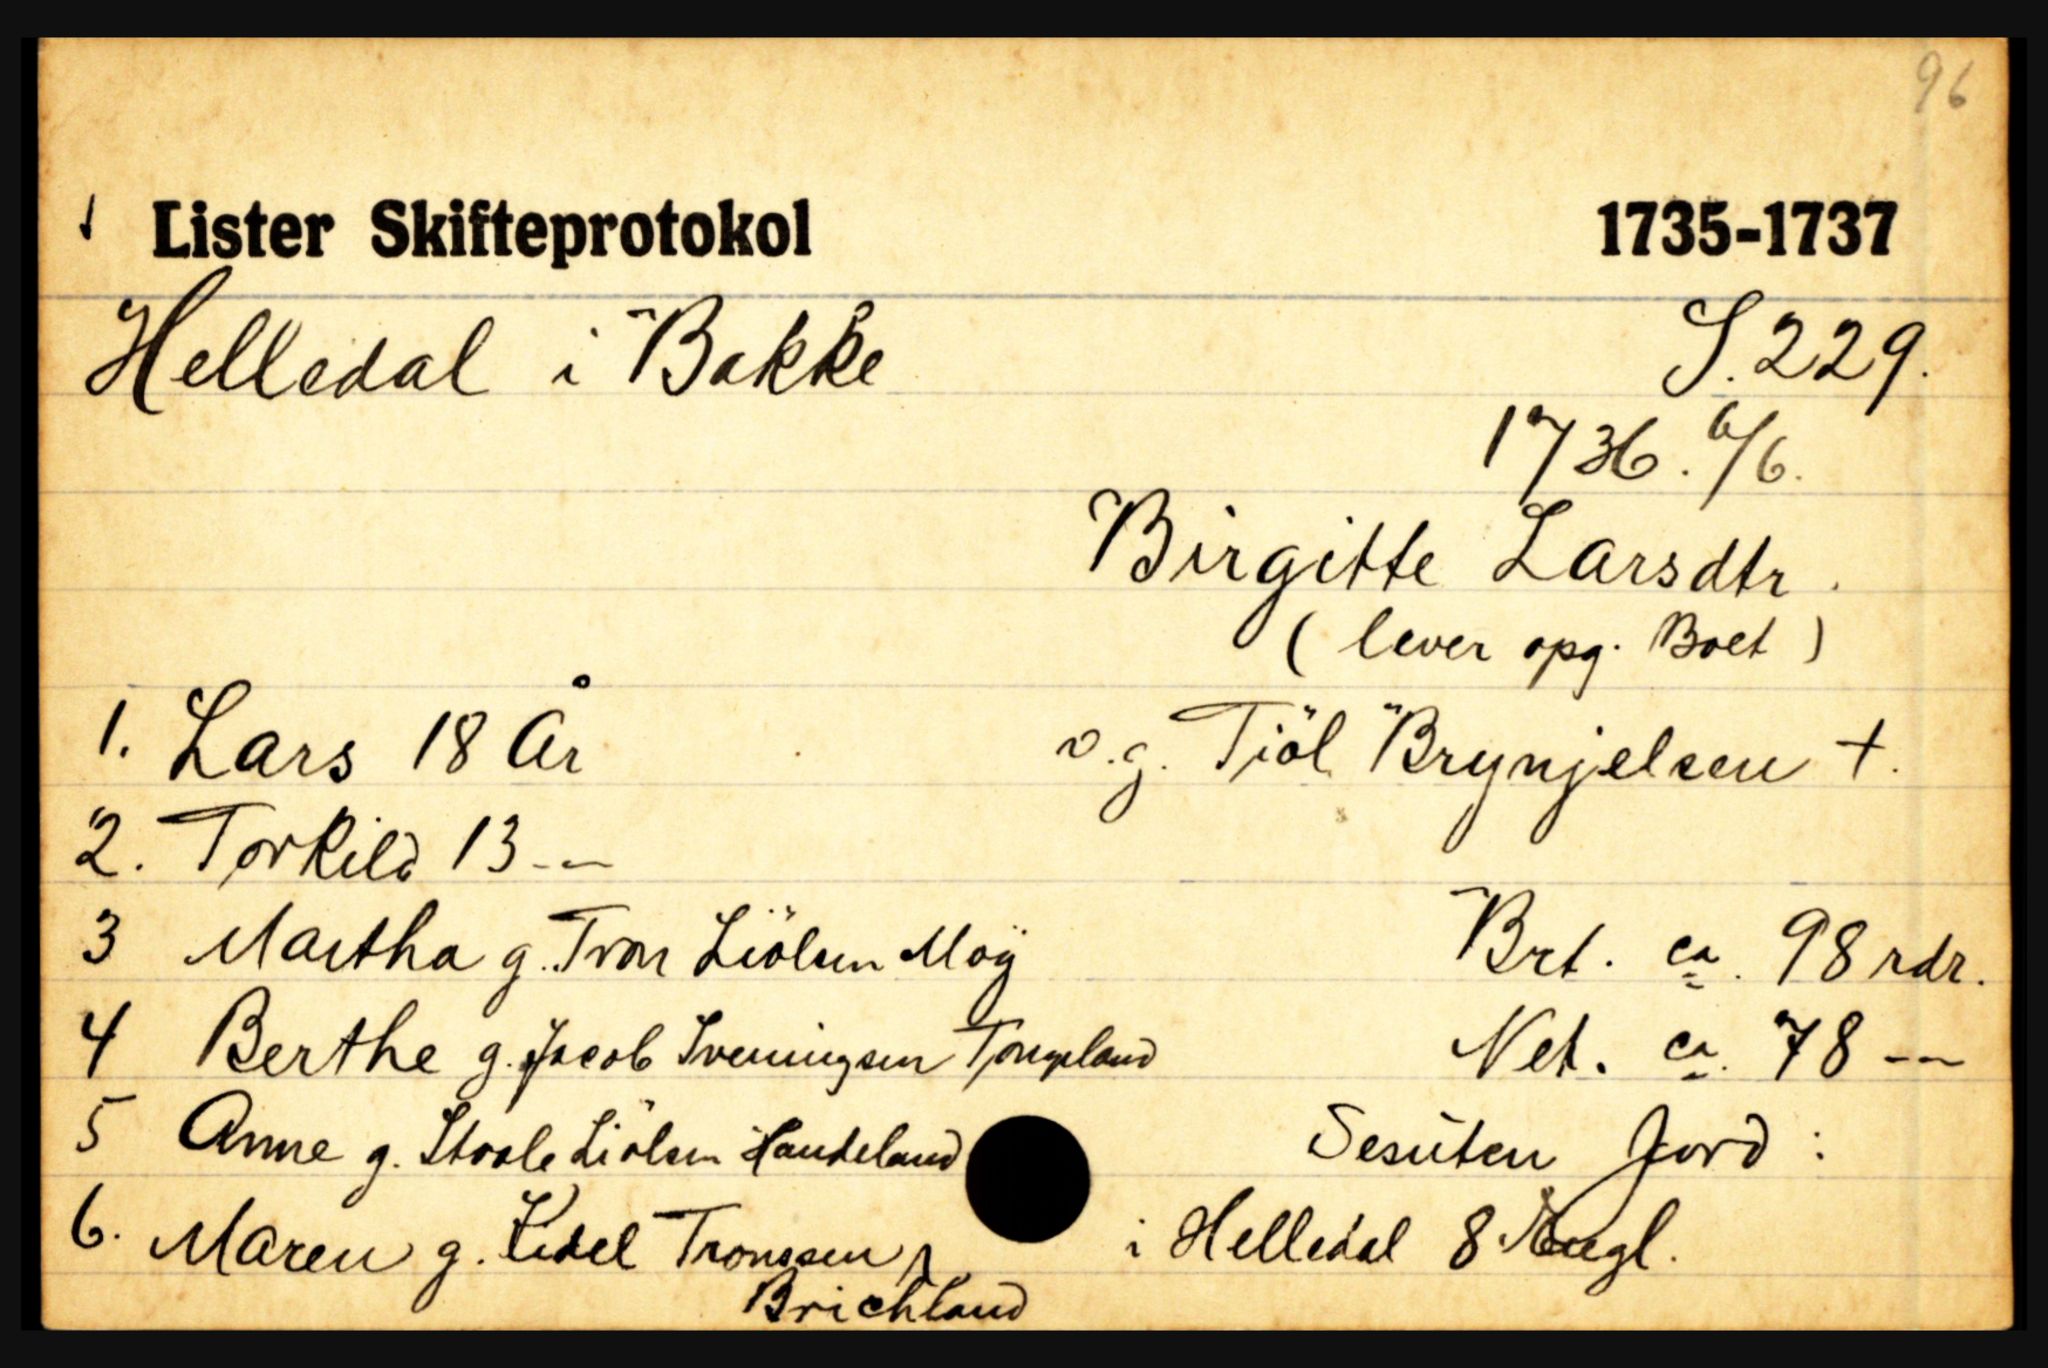 96
Lister Skifteprotokol 1735-1737
Helledal i Bakke S. 229.
1736. 6/6.
Birgitte Larsdtr.
(lever opg. Boet)
1. Lars 18 År v.g. Tiöl Brynjelsen +.
2. Torkild 13 -"-
3 Martha g. Tron Liölsen Moÿ Brt. ca. 98 rdr.
4 Berthe g. Jacob Sveningsen Net. ca. 78 -"-
5 Anne g. Staale Liölsen Haudeland Desüten Jord:
6. Maren g. Kidel Tronssen i Helledal 8 Engl.
Brichland